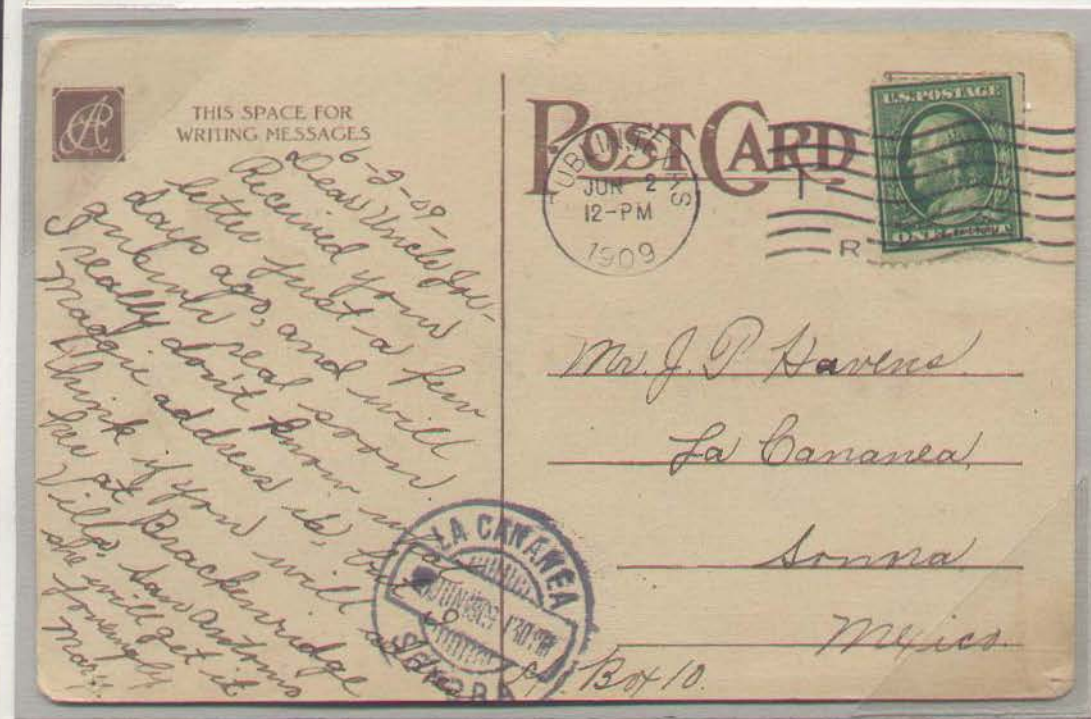 THIS SPACE FOR
WRITING MESSAGES
6-2-09-
Dear Uncle Joe-
Received your
letter just a few
days ago, and will
answer real soon
I really don't know what
Maggie address is, but
think if you will
her at Brackenridge
Villa, San Antonio
she will get it
Lovingly
Mary.
POST CARD
DUBLIN, TEXAS
JUN 2
12-PM
1909
R
U.S. POSTAGE
ONE
Mr. J. P Havens
La Cananea,
Sonora
Mexico.
Box 10.
LA CANANEA
JUN 1909 1:30 PM
SONORA